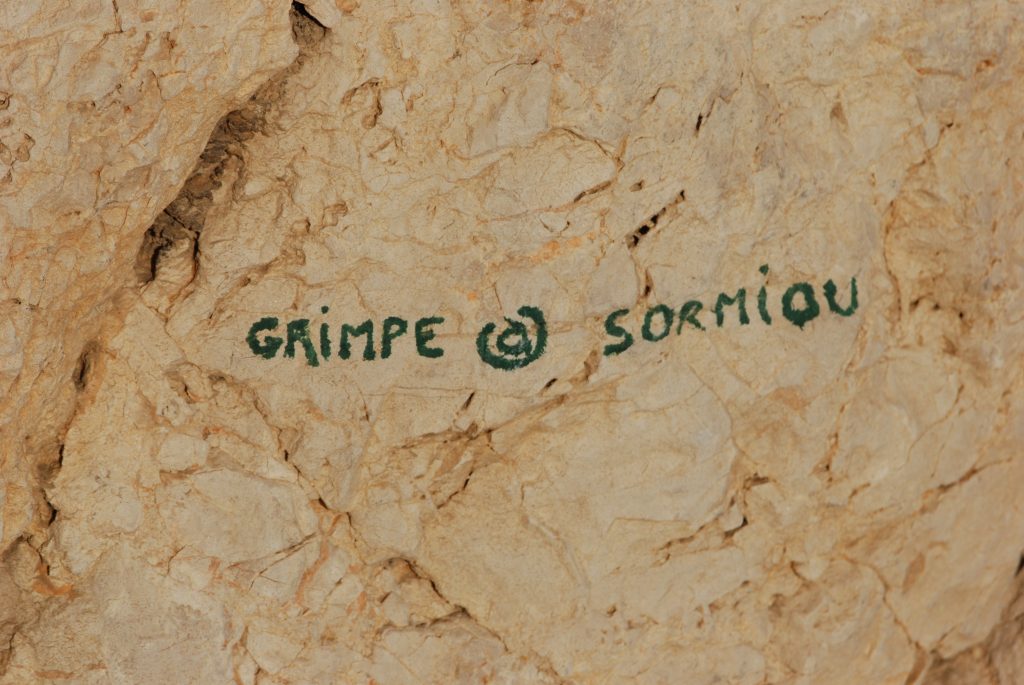 GRiMPE @ SORMiOU